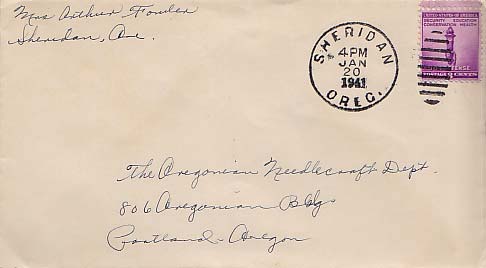 Mrs Arthur Fowler
Sheridan, Ore.
SHERIDAN
4 PM
JAN
20
1941
OREG.
UNITED STATES OF AMERICA
SECURITY EDUCATION
CONSERVATION HEALTH
POSTAGE 3 CENTS
The Oregonian Needlecraft Dept.
806 Oregonian Bldg
Portland - Oregon